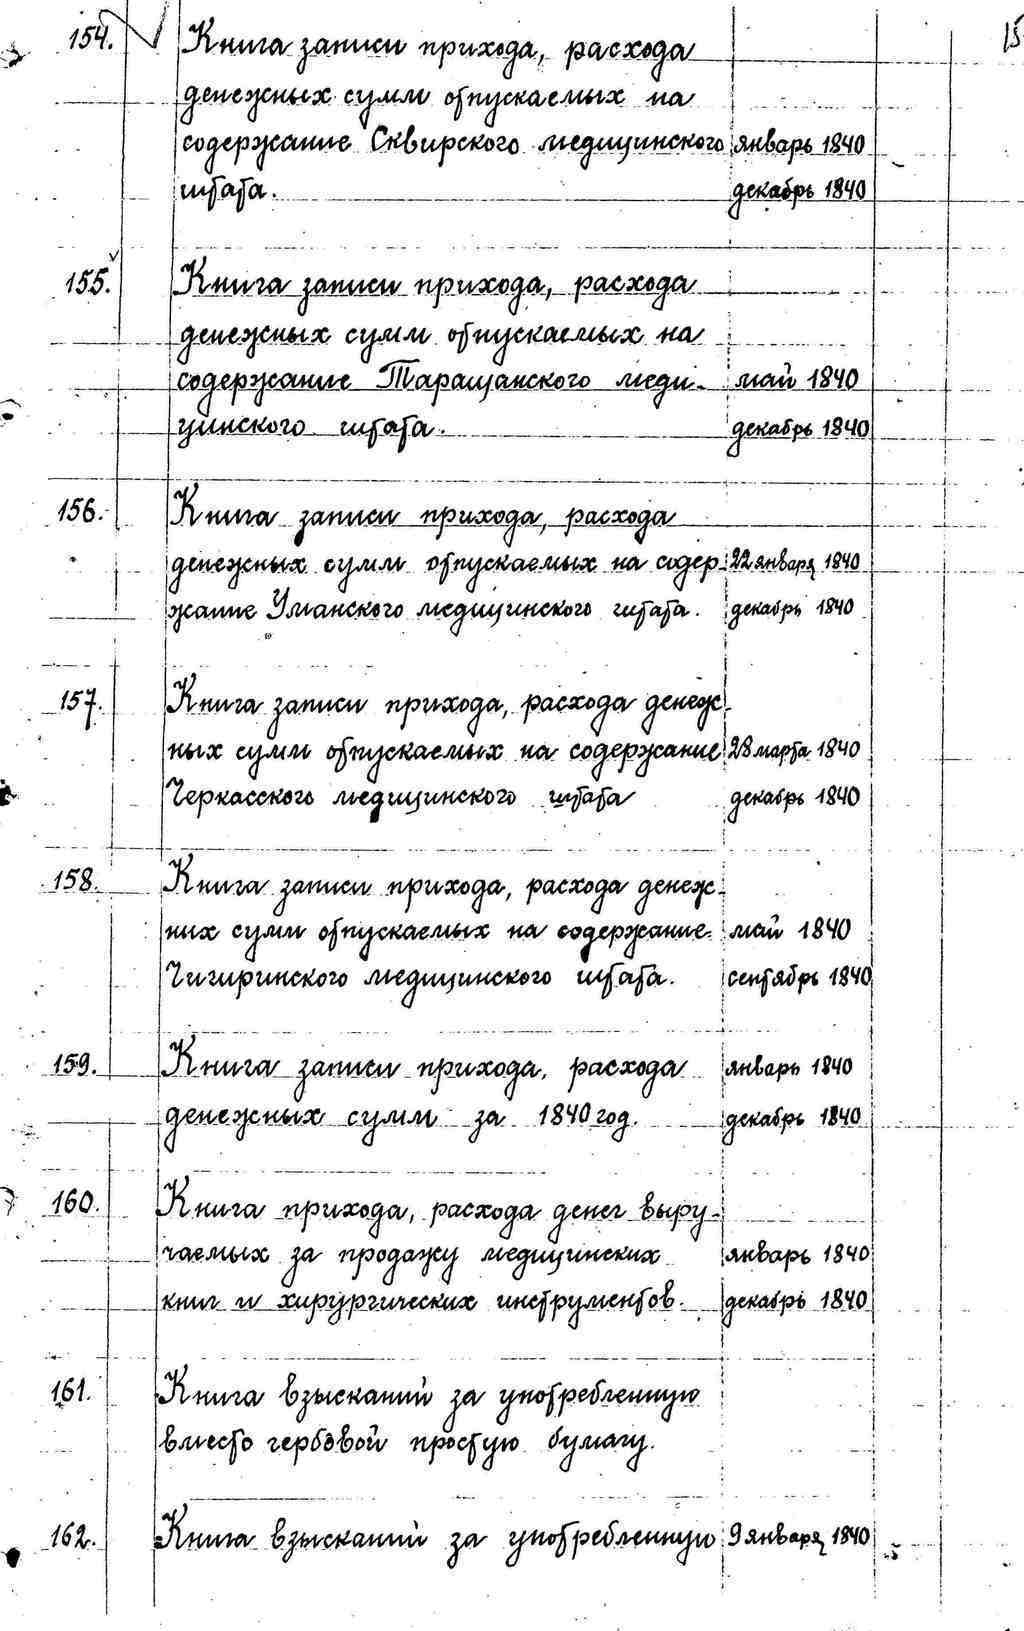 154. Книга записи прихода, расхода
денежных сумм отпускаемых на
содержание Сквирского медицинского январь 1840
штата. декабрь 1840
155. Книга записи прихода, расхода
денежных сумм отпускаемых на
содержание Таращанского меди- май 1840
цинского штата. декабрь 1840
156. Книга записи прихода, расхода
денежных сумм отпускаемых на содер- 22 января 1840
жание Уманского медицинского штата. декабрь 1840
157. Книга записи прихода, расхода денеж-
ных сумм отпускаемых на содержание 28 марта 1840
Черкасского медицинского штата декабрь 1840
158. Книга записи прихода, расхода денеж-
них сумм отпускаемых на содержание май 1840
Чигиринского медицинского штата. сентябрь 1840
159. Книга записи прихода, расхода январь 1840
денежных сумм за 1840 год. декабрь 1840
160. Книга прихода, расхода денег выру-
чаемых за продажу медицинских январь 1840
книг и хирургических инструментов. декабрь 1840
161. Книга взысканий за употребленную
вместо гербовой простую бумагу.
162. Книга взысканий за употребленную 9 января 1840